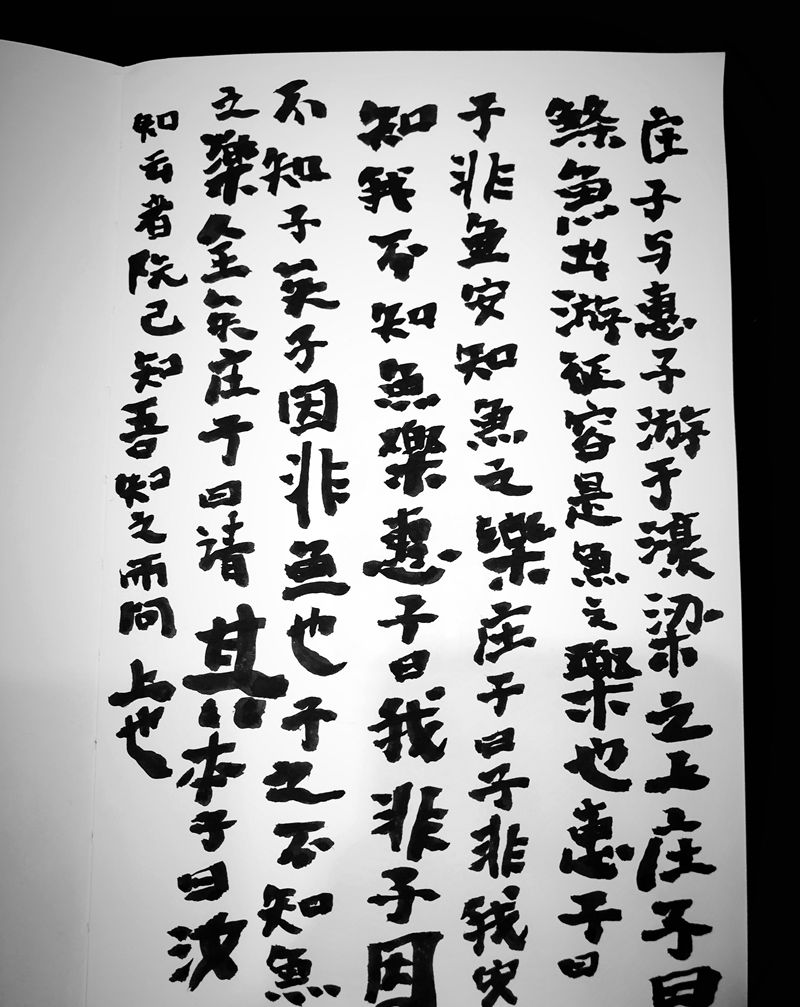 庄子与惠子游于濠梁之上庄子曰
鯈魚出游从容是魚之樂也惠子曰
子非魚安知魚之樂庄子曰子非我安
知我不知魚樂惠子曰我非子因
不知子矣子因非魚也子之不知魚
之樂全矣庄子曰请其本子曰汝
知云者既已知吾知之而问上也